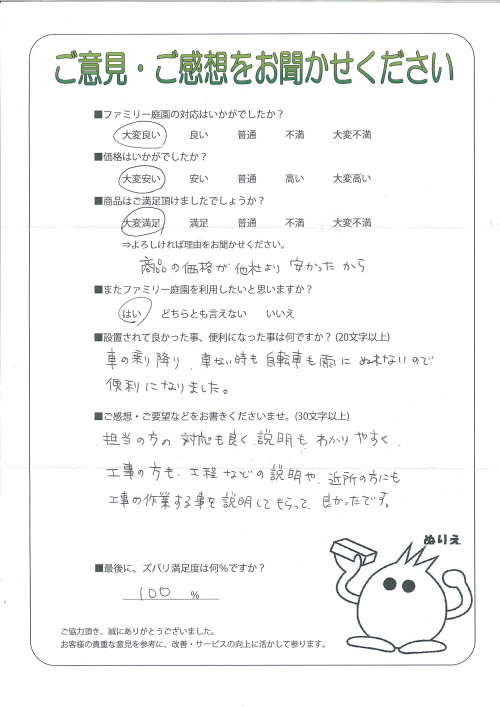 ご意見・ご感想をお聞かせください
■ファミリー庭園の対応はいかがでしたか？
大変良い 良い 普通 不満 大変不満
■価格はいかがでしたか？
大変安い 安い 普通 高い 大変高い
■商品はご満足頂けましたでしょうか？
大変満足 満足 普通 不満 大変不満
⇒よろしければ理由をお聞かせください。
商品の価格が他社より安かったから
■またファミリー庭園を利用したいと思いますか？
はい どちらとも言えない いいえ
■設置されて良かった事、便利になった事は何ですか？(20文字以上)
車の乗り降り、車ない時も自転車も雨にぬれないので
便利になりました。
■ご感想・ご要望などをお書きくださいませ。(30文字以上)
担当の方の対応も良く説明もわかりやすく、
工事の方も、工程などの説明や、近所の方にも
工事の作業する事を説明してもらって、良かったです。
ぬりえ
■最後に、ズバリ満足度は何％ですか？
100 %
ご協力頂き、誠にありがとうございました。
お客様の貴重な意見を参考に、改善・サービスの向上に活かして参ります。